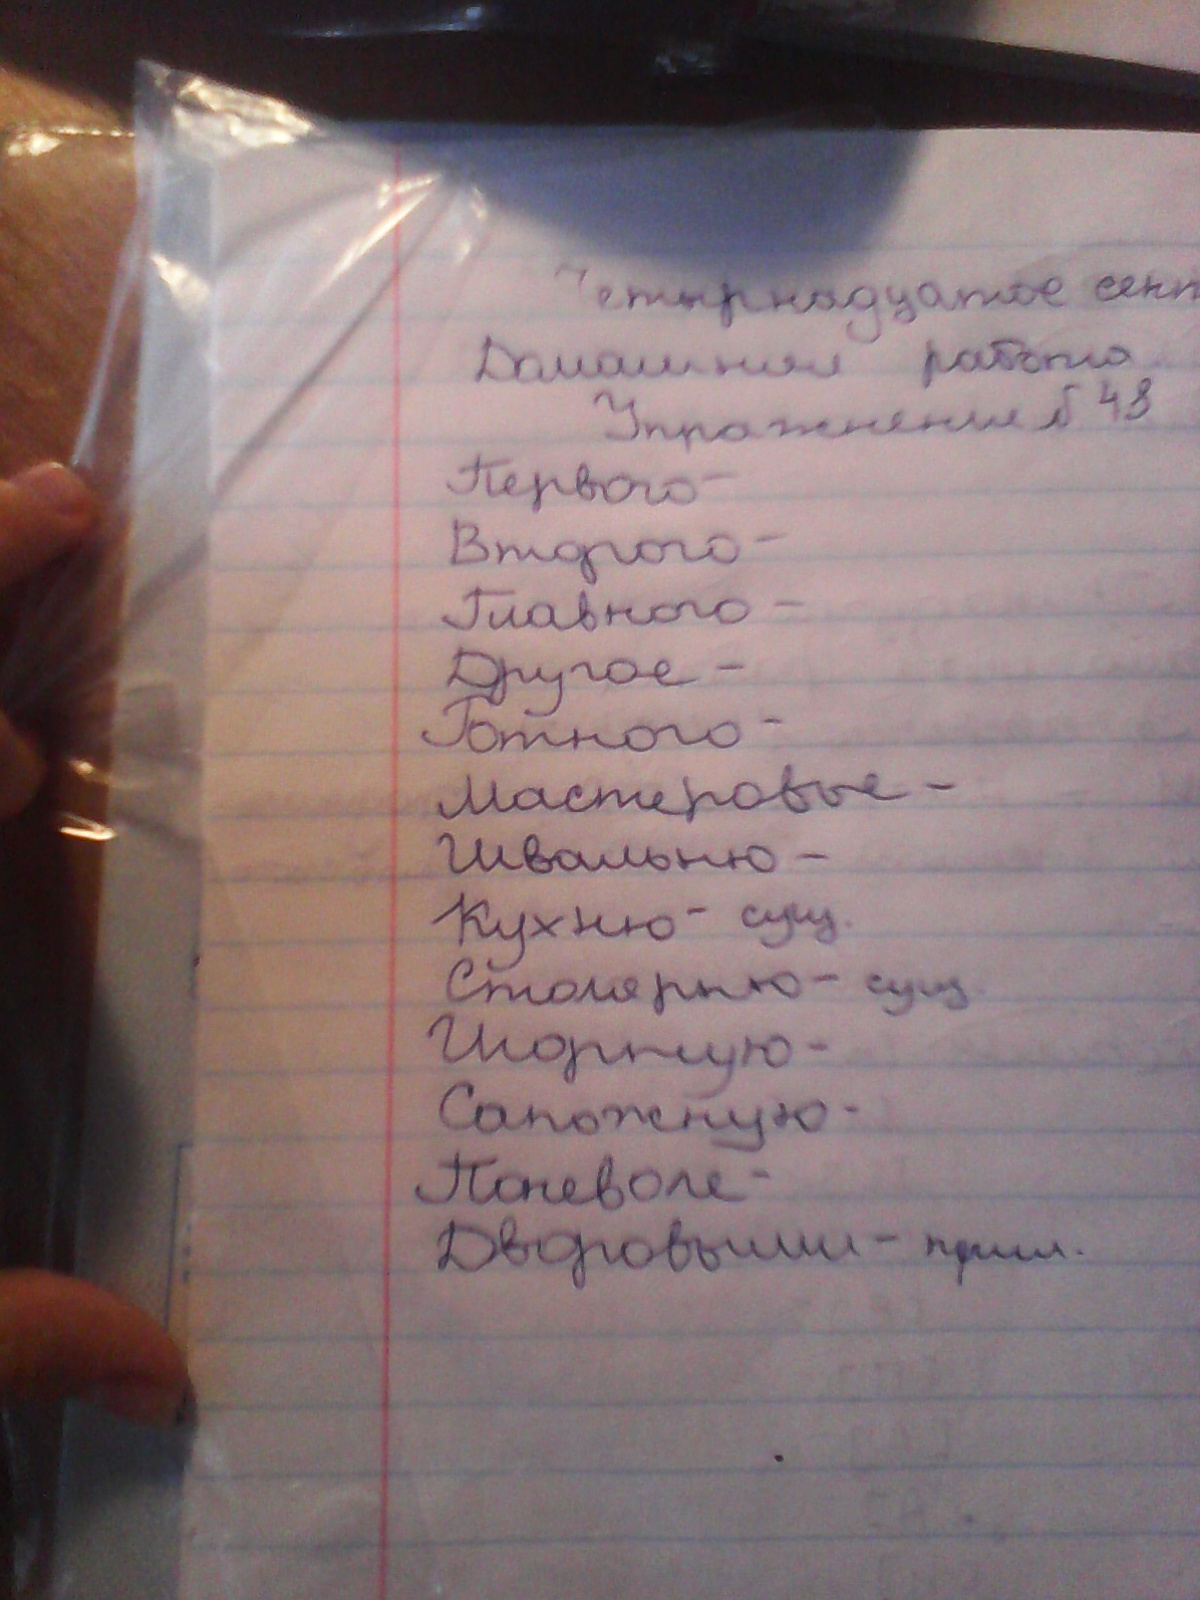 Четырнадцатое сент
Домашняя работа
Упражнение №43
Первого-
Второго-
Главного-
Другое-
Готного-
Мастеровые-
Швальню-
Кухню- сущ.
Столярню- сущ.
Шорную-
Сапожную-
Поневоле-
Дворовыми- прил.